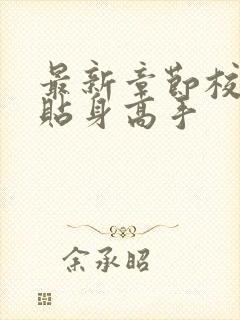 最新章节校
贴身高手
余承昭